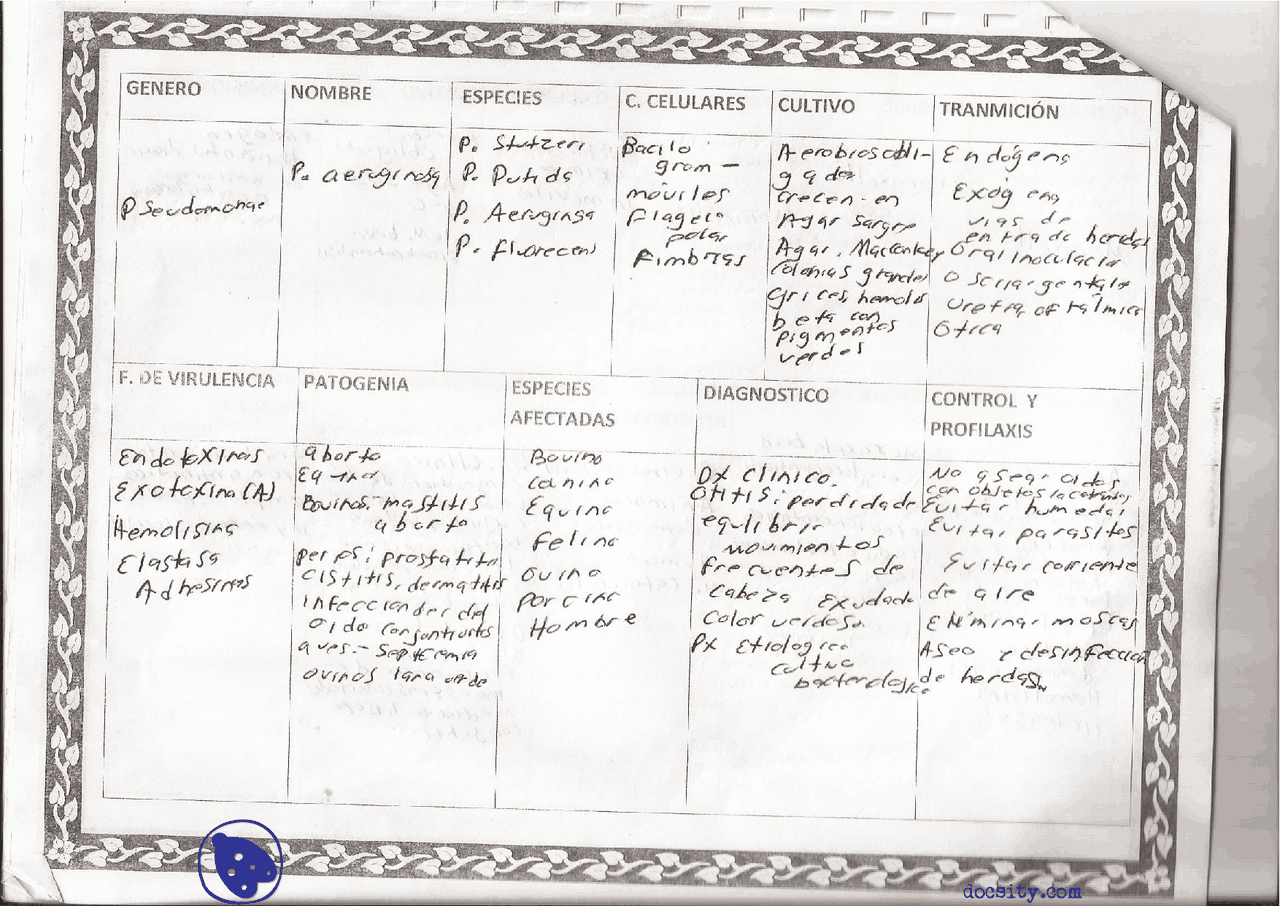 GENERO
PSeudomonae
NOMBRE
P. aeruginosa
ESPECIES
P. Stutzeri
P. Putida
P. Aeruginsa
P. fluorecens
C. CELULARES
Bacilo
gram —
móviles
Flagelo
polar
Fimbrias
CULTIVO
Aerobios obli-
gados
crecen en
Agar sangre
Agar. MacConkey
Colonias grandes
Grices, hemolis
beta con
pigmentos
verdes
TRANMICIÓN
Endógena
Exógena
vias de
entrada heridas
Oral inoculacio
genital
uretra oftálmica
Otica
F. DE VIRULENCIA
Endotoxinas
Exotoxina (A)
Hemolisina
Elastasa
Adhesinas
PATOGENIA
aborto
Bovinos: mastitis
aborto
perros: prostatitis
Cistitis, dermatitis
Infeccion del
oido conjuntivitis
aves.- Septicemia
ovinos lana verde
ESPECIES
AFECTADAS
Bovino
Canino
Equino
Felino
Ovino
Porcino
Hombre
DIAGNOSTICO
DX Clinico.
Otitis: perdida de
equilibrio
movimientos
frecuentes de
cabeza exudado
color verdoso.
Etiologico
cultivo
bacteriologico
CONTROL Y
PROFILAXIS
No asear oidos
con objetos
Evitar humedad
Evitar parasitos
Evitar corriente
de aire
Eliminar moscas
Aseo y desinfeccion
de heridas
docsity.com